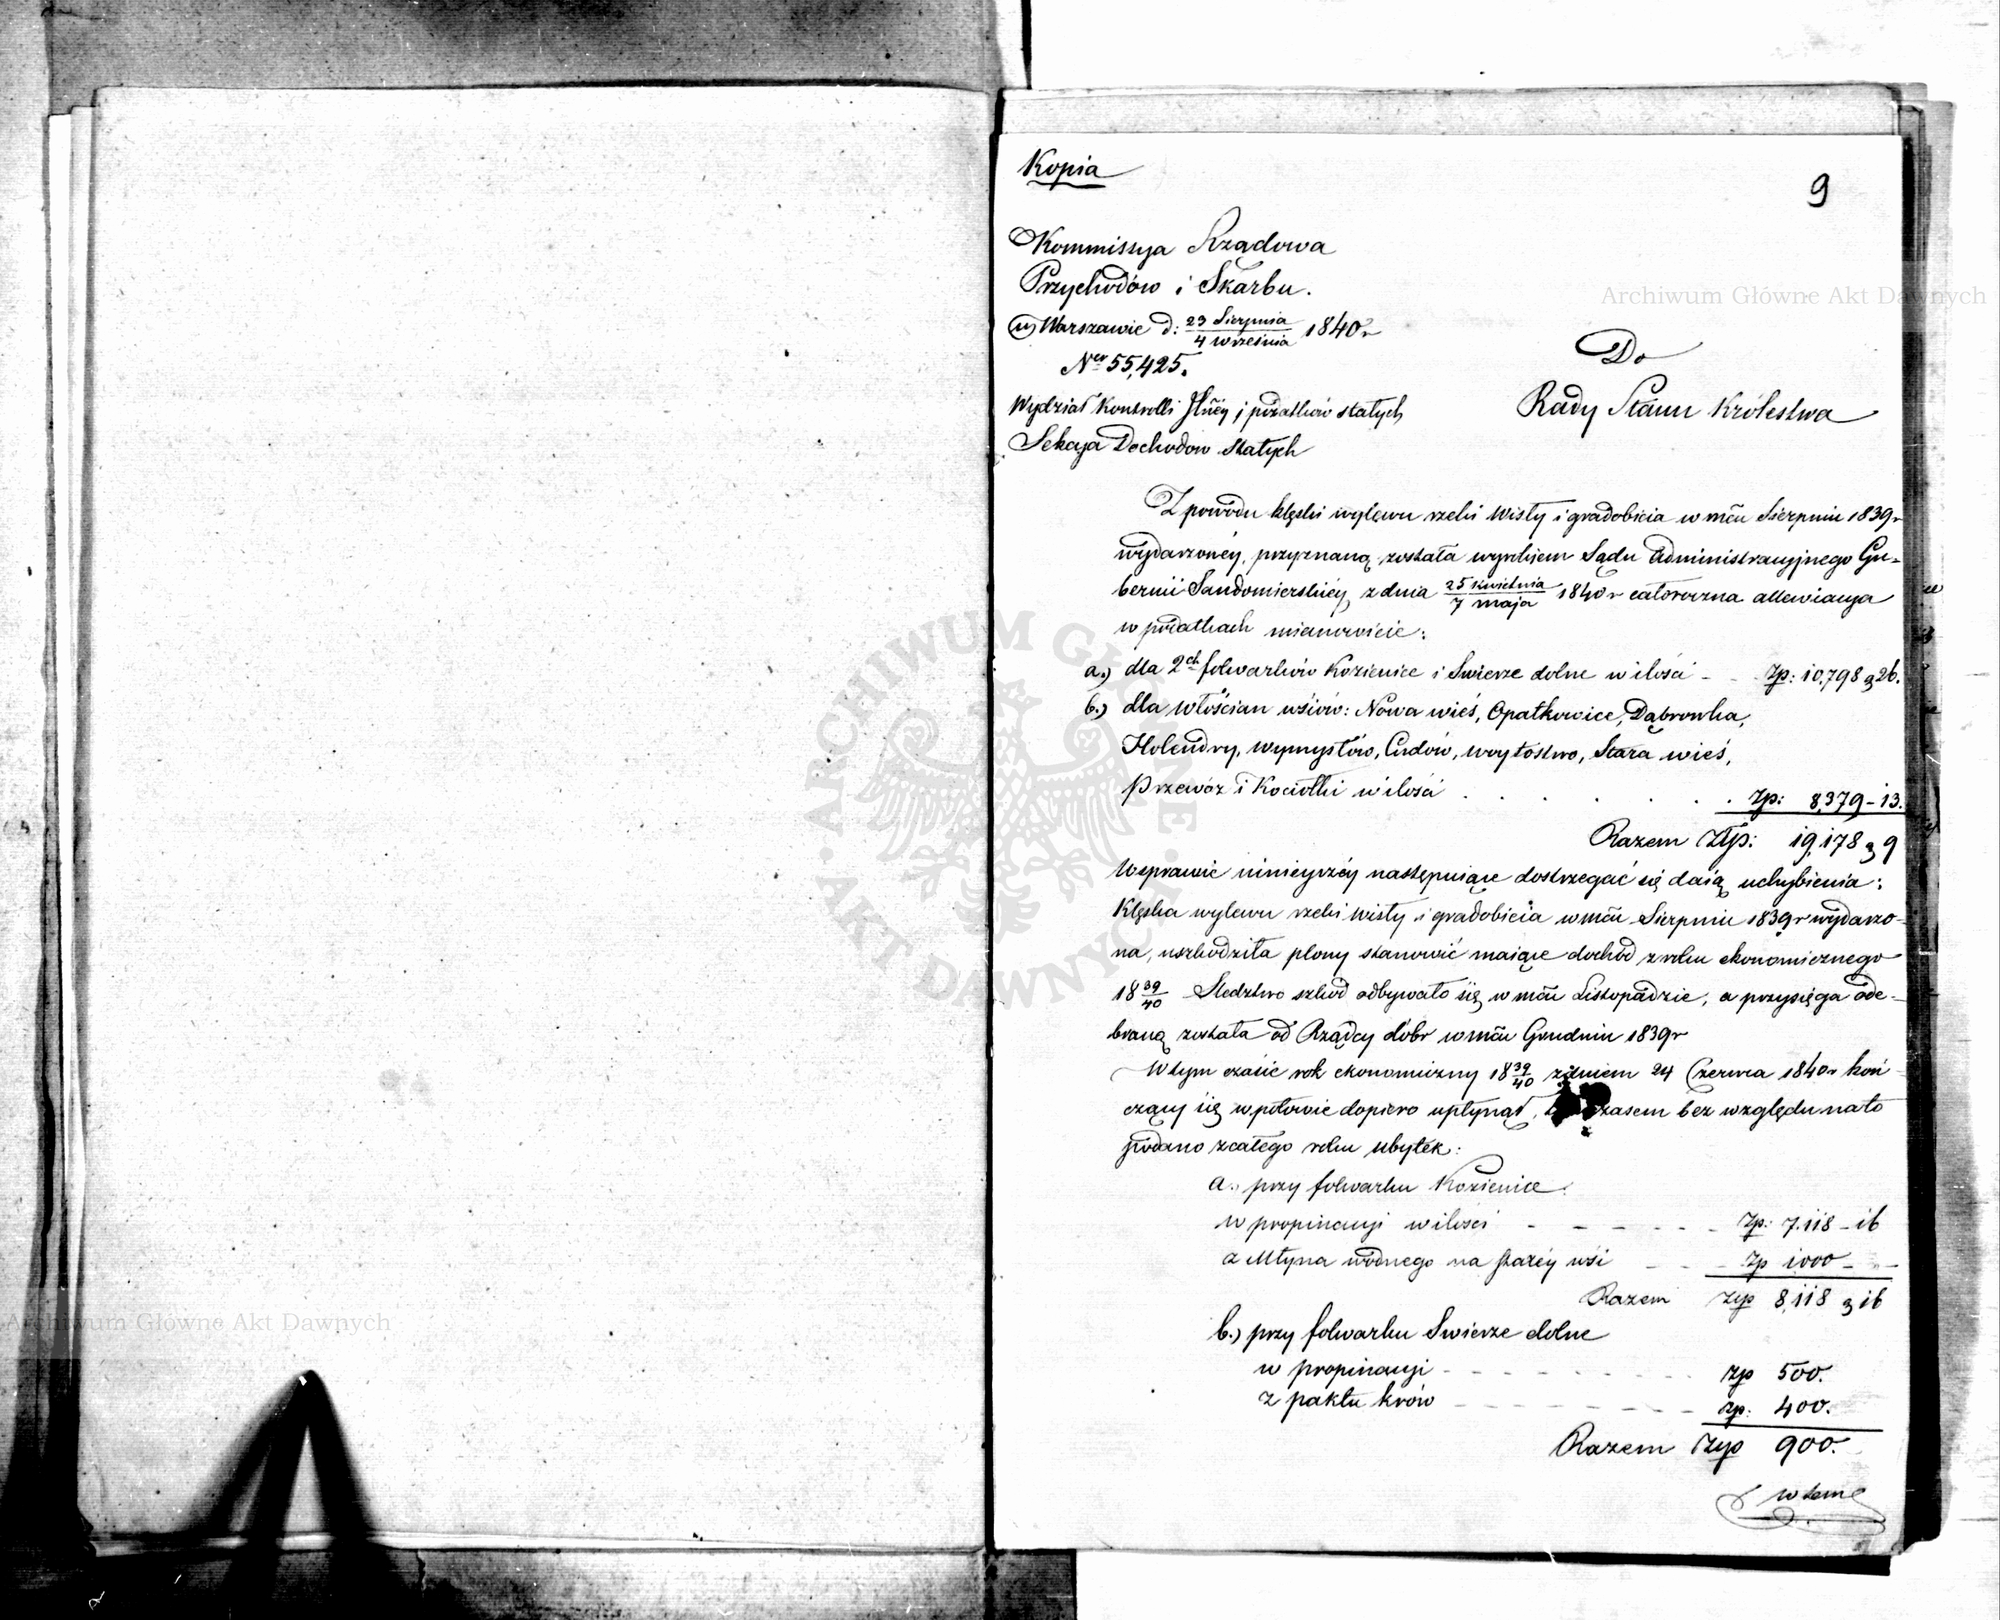 Kopia
9
Kommissya Rządowa
Przychodów i Skarbu.
w Warszawie d: 23 Sierpnia / 4 września 1840 r
Ner 55,425.
Wydział Kontrolli Jlnéy i podatków stałych
Sekcya Dochodow stałych
Do
Rady Stanu Królestwa
Z powodu klęski wylewu rzeki Wisły i gradobicia w mcu Sierpniu 1839 r
wydarzonéy, przyznaną została wyrokiem Sądu Administracyjnego Gu-
bernii Sandomierskiéy z dnia 25 kwietnia / 7 maja 1840 r całoroczna allewiacya
w podatkach mianowicie:
a.) dla 2ch folwarków Kozienice i Swierze dolne w ilości - - Zp: 10,798 g 26.
b.) dla włościan wsiów: Nowa wieś, Opatkowice, Dąbrowka,
Holendry, Wymysłów, Cudów, Woytostwo, Stara wieś,
Przewóz i Kociołki w ilości . . . . . . . Zp: 8,379 - 13.
Razem Złp: 19,178 g 9
W sprawie ninieyszéy następuiące dostrzegać się daią uchybienia:
Klęska wylewu rzeki Wisły i gradobicia w mcu Sierpniu 1839 r wydarzo-
na, uszkodziła plony stanowić maiące dochód z roku ekonomicznego
18 39/40 Sledztwo szkód odbywało się w mcu Listopadzie, a przysięga ode-
braną została od Rządcy dóbr w mcu Grudniu 1839 r
W tym czasie rok ekonomiczny 18 39/40 z dniem 24 Czerwca 1840 r koń-
czący się w połowie dopiero upłynął, bez względu na to
podano z całego roku ubytek:
a. przy folwarku Kozienice:
w propinacyi w ilości - - - - - - Zp: 7.118 - 16
z Młyna wodnego na staréy wsi - - - Zp 1000 - -
Razem Złp 8,118 g 16
b.) przy folwarku Swierze dolne
w propinacyi - - - - - - - - Zp 500.
z paktu krów - - - - - - - - Zp. 400.
Razem Złp 900.
w tem
Archiwum Główne Akt Dawnych
Archiwum Główne Akt Dawnych
ARCHIWUM GŁÓWNE AKT DAWNYCH